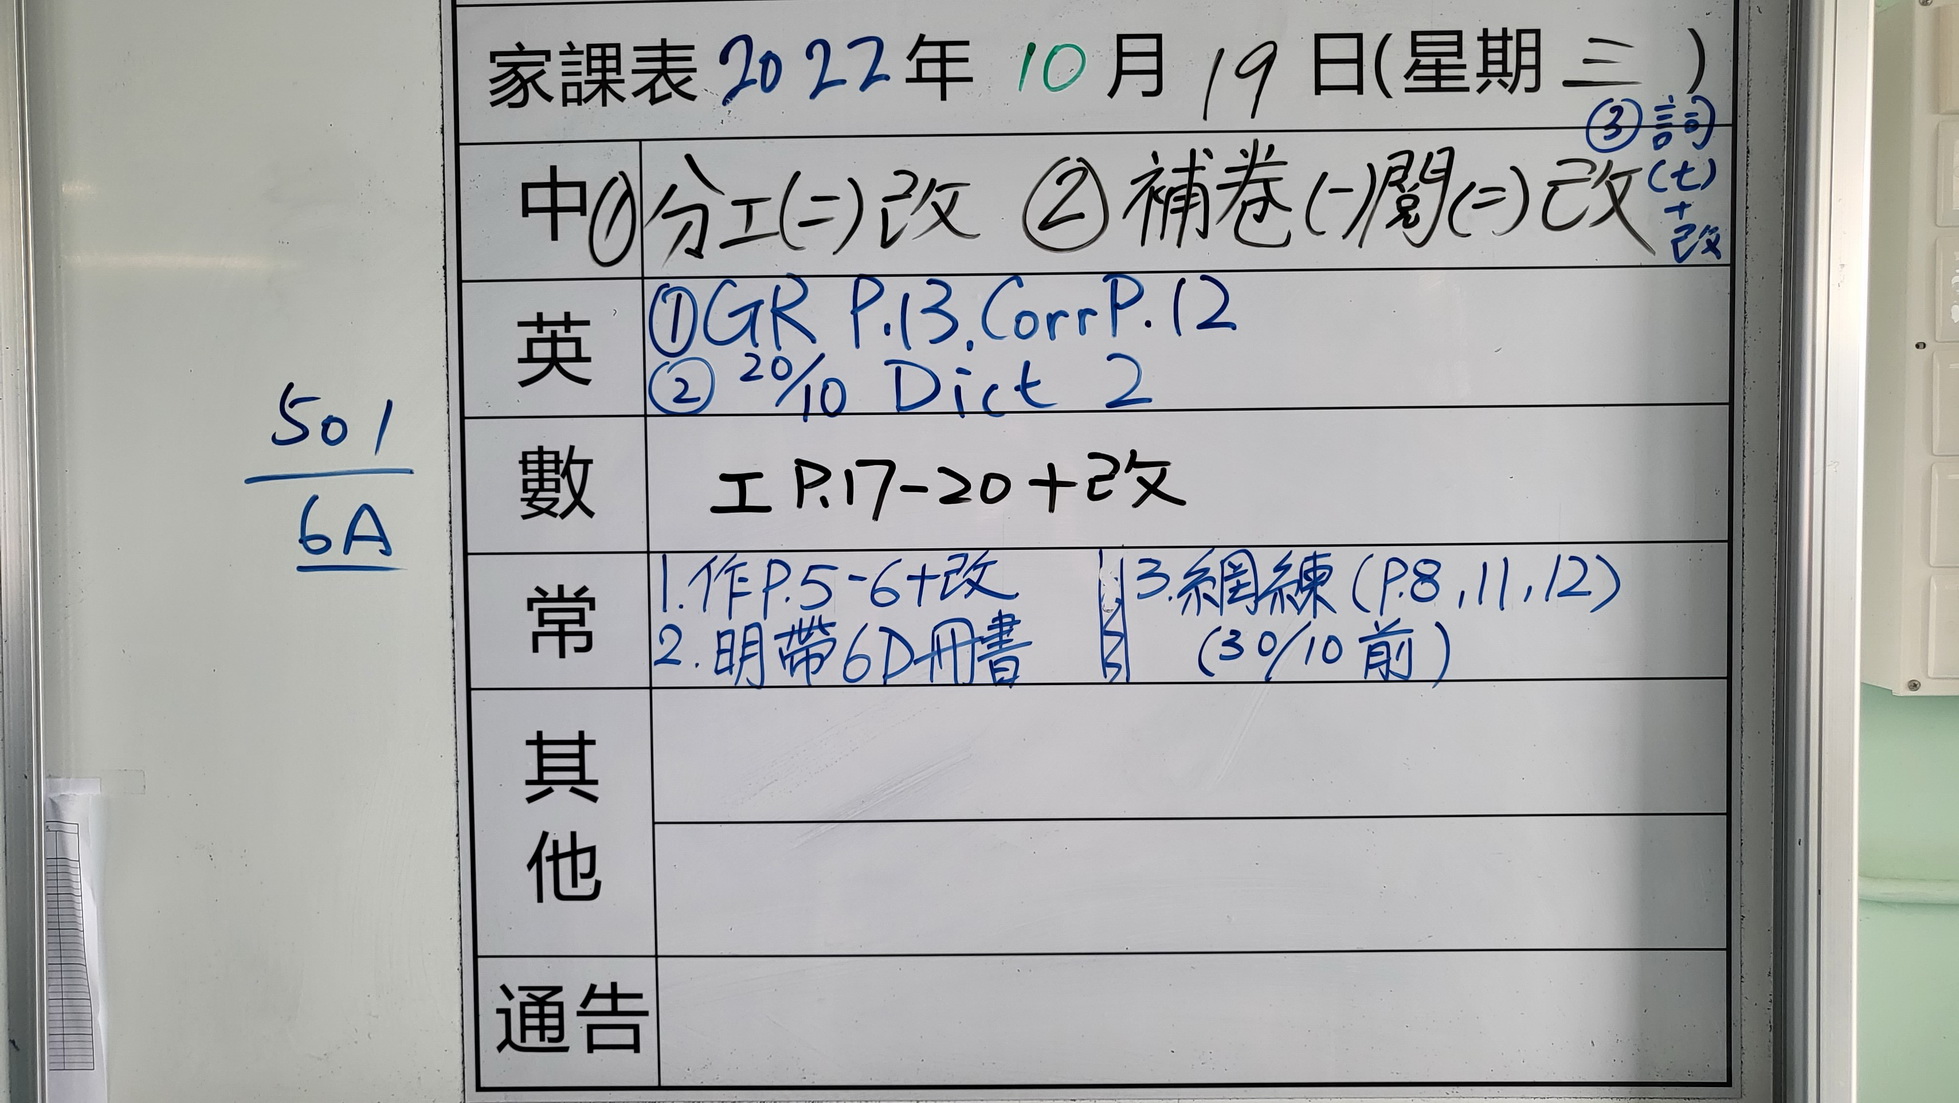 家課表 2022年 10月 19日(星期三)
中 ①分工(二)改 ②補卷(一)閱(二)改 ③詞
(七)
+
改
英 ①GR P.13. Corr P.12
②20/10 Dict 2
501
6A
數 工 P.17-20+改
常 1.作P.5-6+改 3.網練(P.8,11,12)
2.明帶6D冊書 (30/10前)
其
他
通告